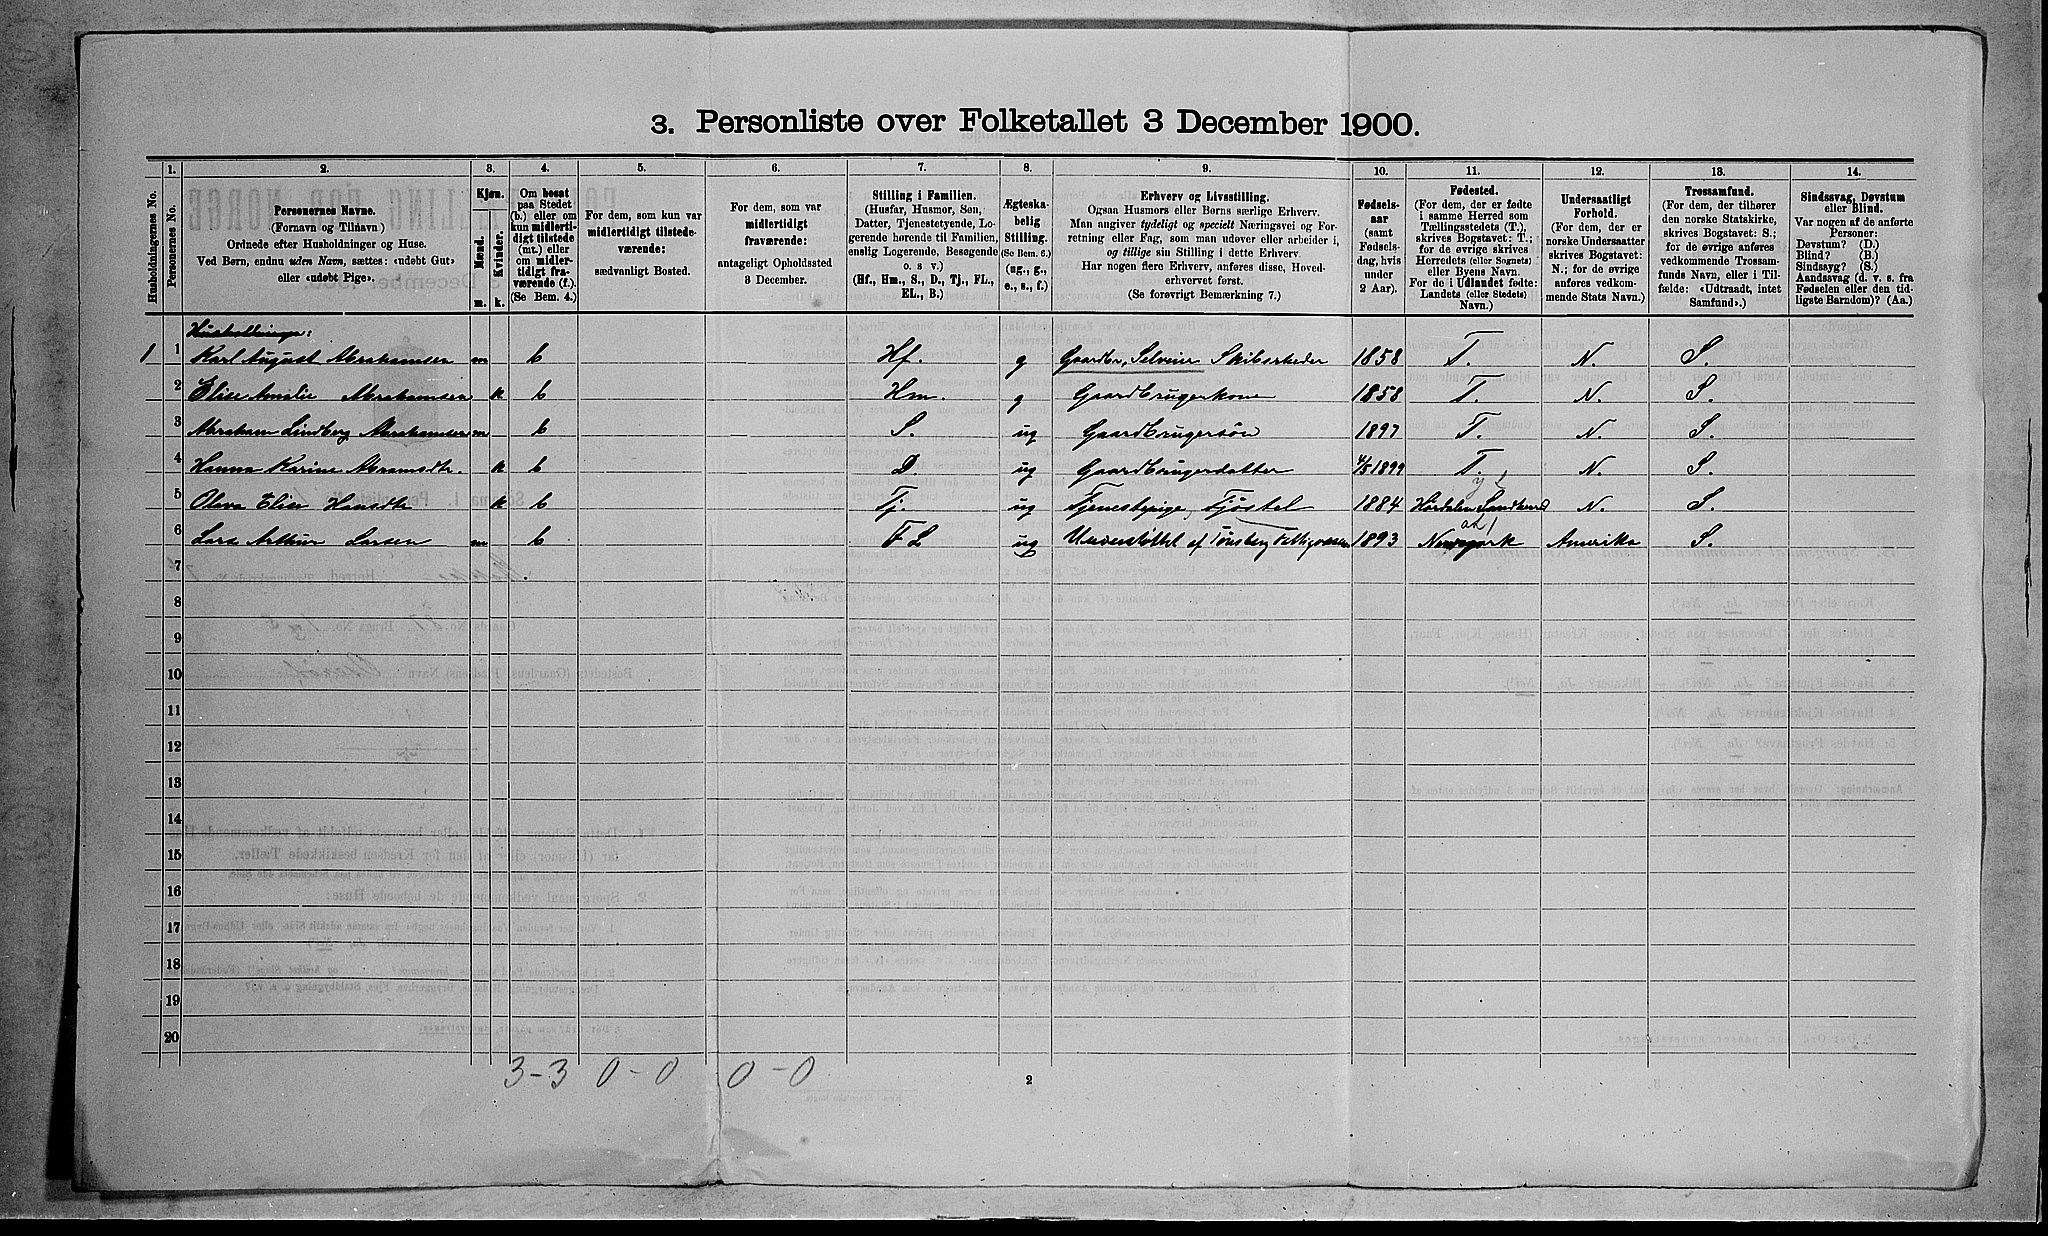 3. Personliste over Folketallet 3 December 1900.
Husholdningernes No.
1.
Personernes No.
2.
Personernes Navne.
(Fornavn og Tilnavn)
Ordnede efter Husholdninger og Huse.
Ved Børn, endnu uden Navn, sættes: «udøbt Gut»
eller «udøbt Pige».
3.
Kjøn.
Mænd. Kvinder.
m. k.
4.
Om bosat
paa Stedet
(b.) eller om
kun midlertidigt tilstede
(mt.) eller
om midlertidigt fraværende (f.).
(Se Bem. 4.)
5.
For dem, som kun var
midlertidigt tilstedeværende:
sædvanligt Bosted.
6.
For dem, som var
midlertidigt
fraværende:
antageligt Opholdssted
3 December.
7.
Stilling i Familien.
(Husfar, Husmor, Søn,
Datter, Tjenestetyende, Logerende hørende til Familien,
enslig Logerende, Besøgende
o. s. v.)
(Hf., Hm., S., D., Tj., FL.,
EL., B.)
8.
Ægteskabelig
Stilling.
(Se Bem. 6.)
(ug., g.,
e., s., f.)
9.
Erhverv og Livsstilling.
Ogsaa Husmors eller Børns særlige Erhverv.
Man angiver tydeligt og specielt Næringsvei og Forretning eller Fag, som man udøver eller arbeider i,
og tillige sin Stilling i dette Erhverv.
Har nogen flere Erhverv, anføres disse, Hovederhvervet først.
(Se forøvrigt Bemærkning 7.)
10.
Fødselsaar
(samt
Fødselsdag, hvis
under
2 Aar).
11.
Fødested.
(For dem, der er fødte
i samme Herred som
Tællingsstedets (T.),
skrives Bogstavet: T.;
for de øvrige skrives
Herredets (eller Sognets)
eller Byens Navn.
For de i Udlandet fødte:
Landets (eller Stedets)
Navn.)
12.
Undersaatligt
Forhold.
(For dem, der er
norske Undersaatter
skrives Bogstavet:
N.; for de øvrige
anføres vedkommende Stats Navn.)
13.
Trossamfund.
(For dem, der tilhører
den norske Statskirke,
skrives Bogstavet: S.;
for de øvrige anføres
vedkommende Trossamfunds Navn, eller i Tilfælde: «Udtraadt, intet
Samfund».)
14.
Sindssvag, Døvstum
eller Blind.
Var nogen af de anførte
Personer:
Døvstum? (D.)
Blind? (B.)
Sindssyg? (S.)
Aandssvag (d. v. s. fra
Fødselen eller den tidligste Barndom)? (Aa.)
Husholdninge:
1 1 Karl August Abrahamsen m b Hf. g Gaardbr, Selveier Skibsrheder 1858 T. N. S.
2 Elise Amalie Abrahamsen k b Hm. g Gaardbrugerkone 1858 T. N. S.
3 Abraham Lindberg Abrahamsen m b S. ug Gaardbrugersøn 1897 T. N. S.
4 Hanna Karine Abramsdtr. k b D. ug Gaardbrugerdatter 4/5 1899 T. N. S.
5 Olava Elise Hansdtr k b Tj. ug Tjenestepige, Fjøstel 1884 N. S.
6 Lars Arthur Larsen m b FL ug Understøttet af Tønsberg Fattigvæsen 1893 Newyork Amerika S.
7
8
9
10
11
12
13
14
15
16
17
18
19
20
3-3 0-0 0-0
2